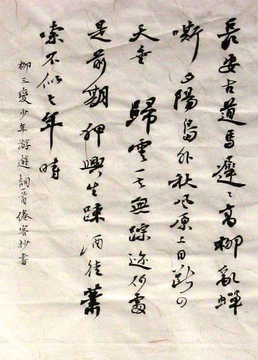 長安古道馬遲遲高柳亂蟬
嘶夕陽島外秋風原上目斷四
天垂 歸雲一去無踪迹何處
是前期狎興生疎酒徒蕭
索不似少年時
柳三變少年游 詞一首